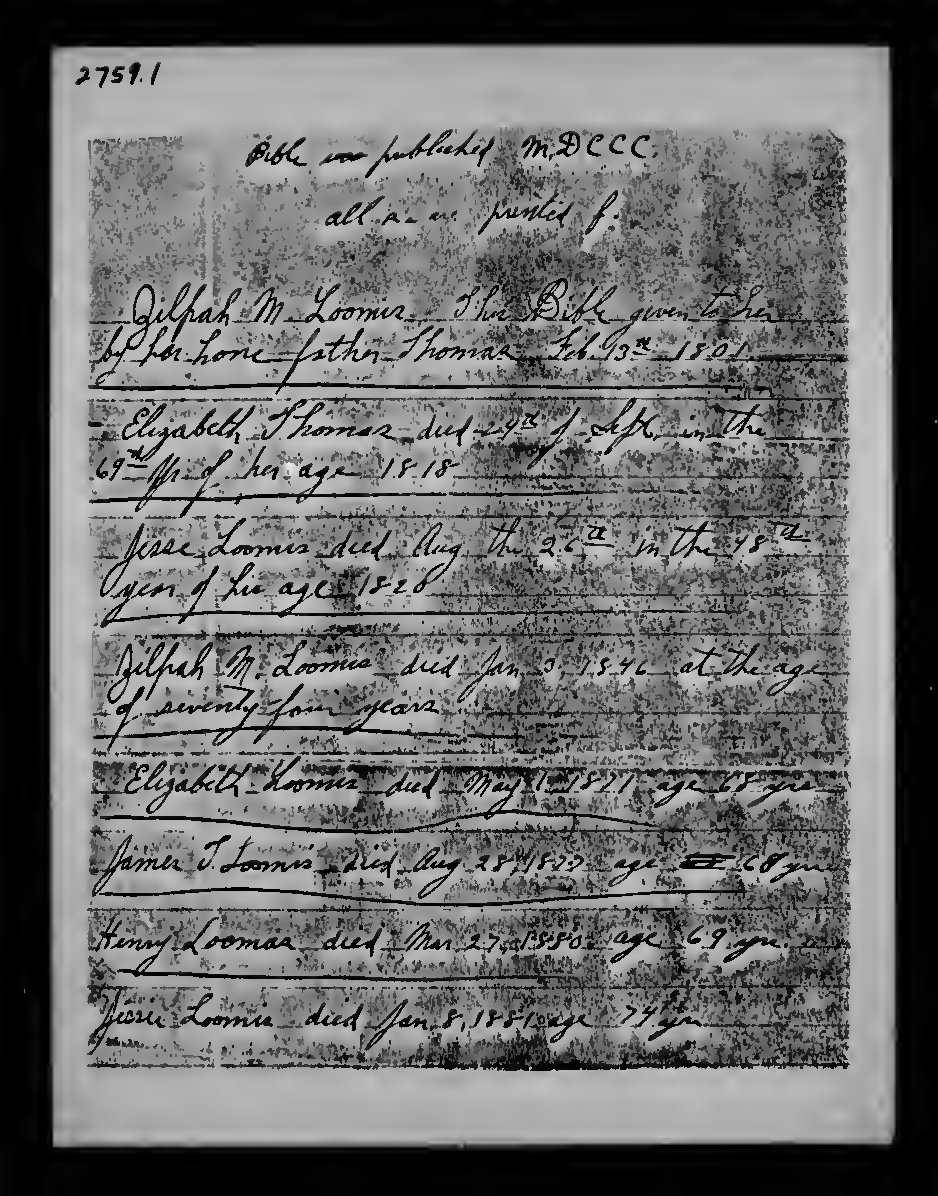 2759.1
Bible was published MDCCC.
all printed f.
Zilpah M. Loomis. This Bible given to her
by her hond father Thomas Feb. 13th 1801
Elizabeth Thomas died of Sept. in the
69th Yr. of her age 1818
Jesse Loomis died Aug the 26th in the 48th
year of his age 1820
Zilpah M. Loomis died Jan 3, 1846 at the age
of seventy four years
Elizabeth Loomis died May 1 1871 age 68 yrs
James T. Loomis died Aug 28, age 68 yrs
Henry Loomas died Mar 27, 1880. age 69 yrs.
Jessie Loomis died Jan 8, 1881 age 74 yrs